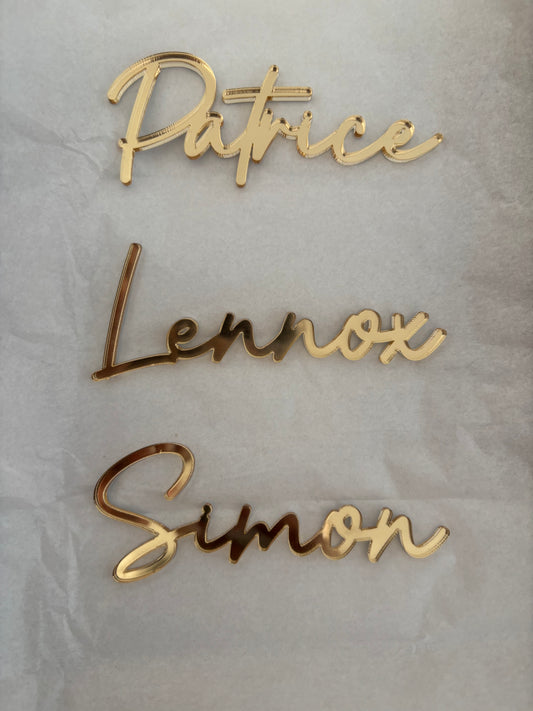 Patrice
Lennox
Simon